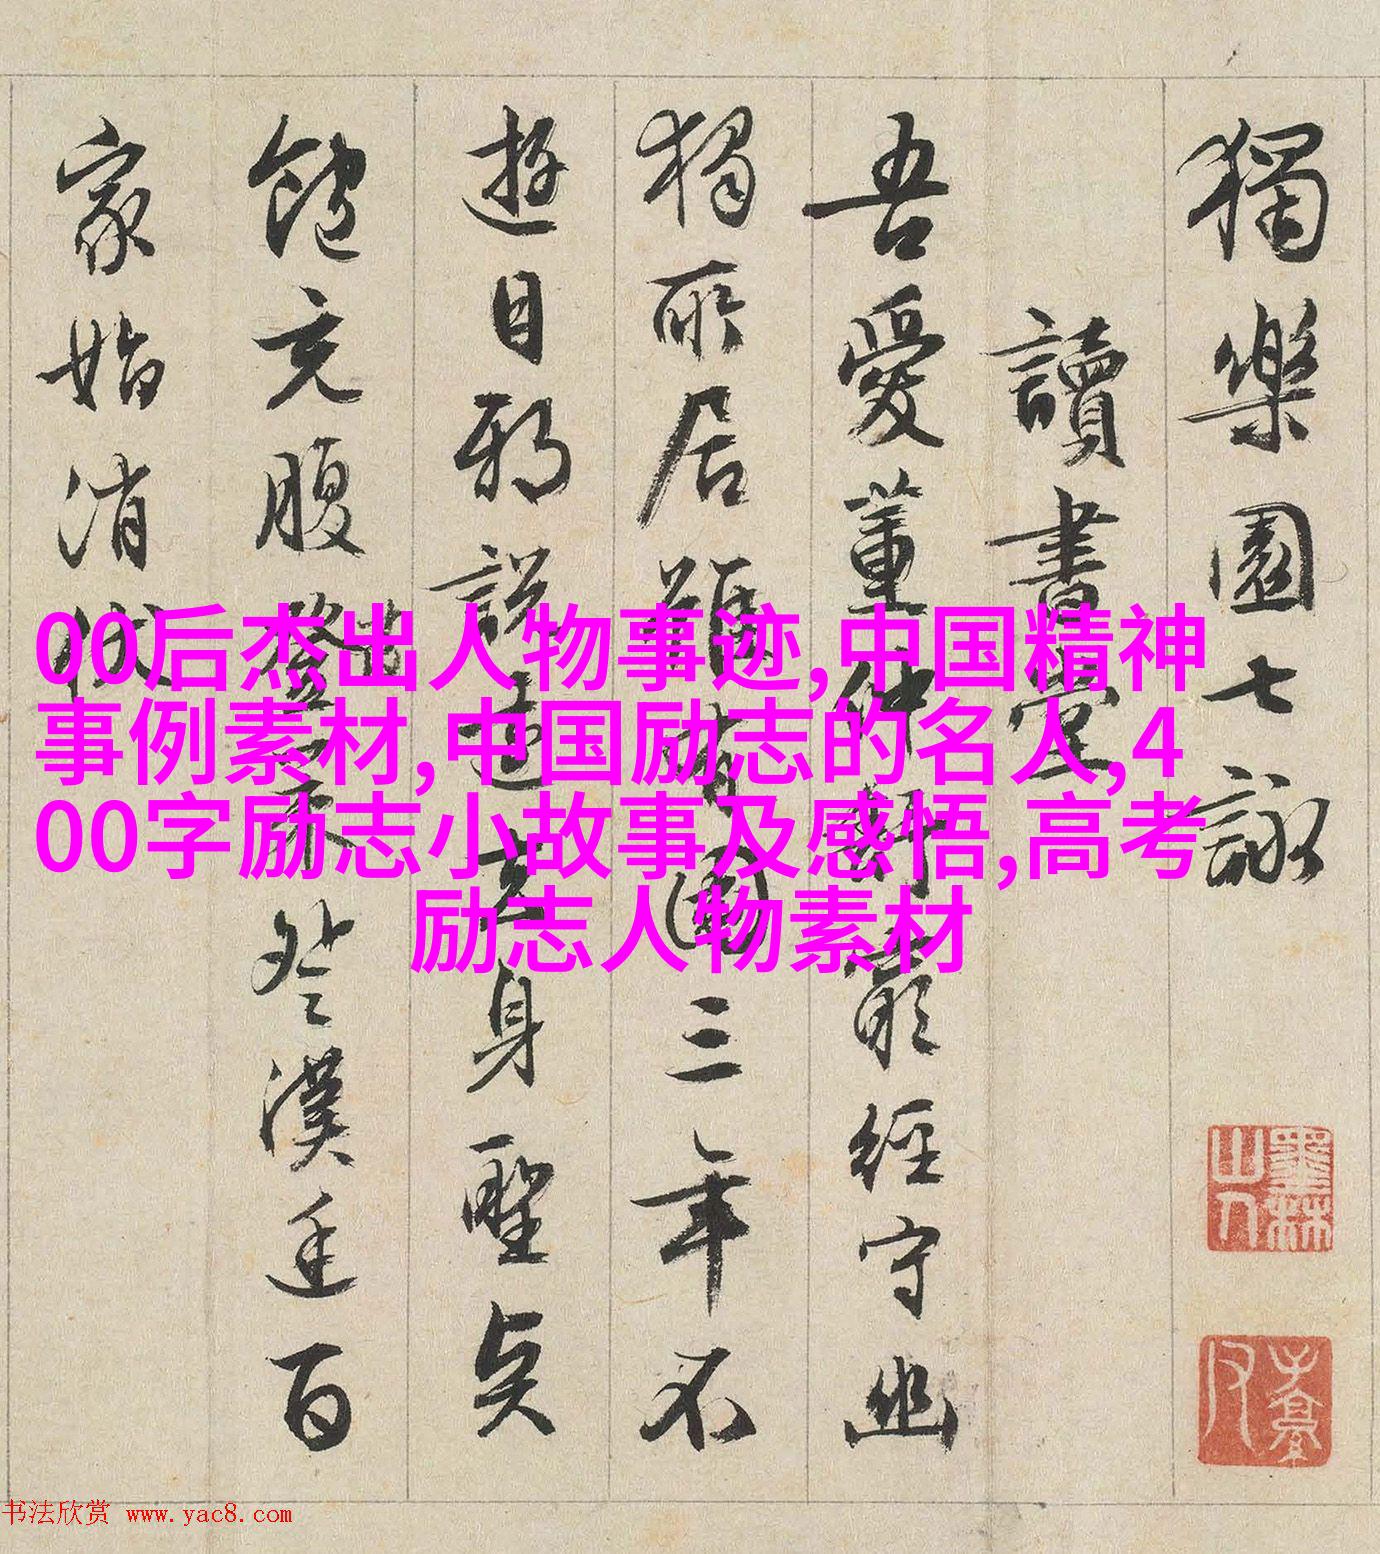 獨樂園七詠
讀書堂
吾愛董仲舒窮經守幽
獨所居雖有園三年不
遊目邪說遠去身聖
飽充腹發策登漢廷百
家始消伏
00后杰出人物事迹,中国精神
事例素材,中国励志的名人,4
00字励志小故事及感悟,高考
励志人物素材
墨林
山人
书法欣赏 www.yac8.com